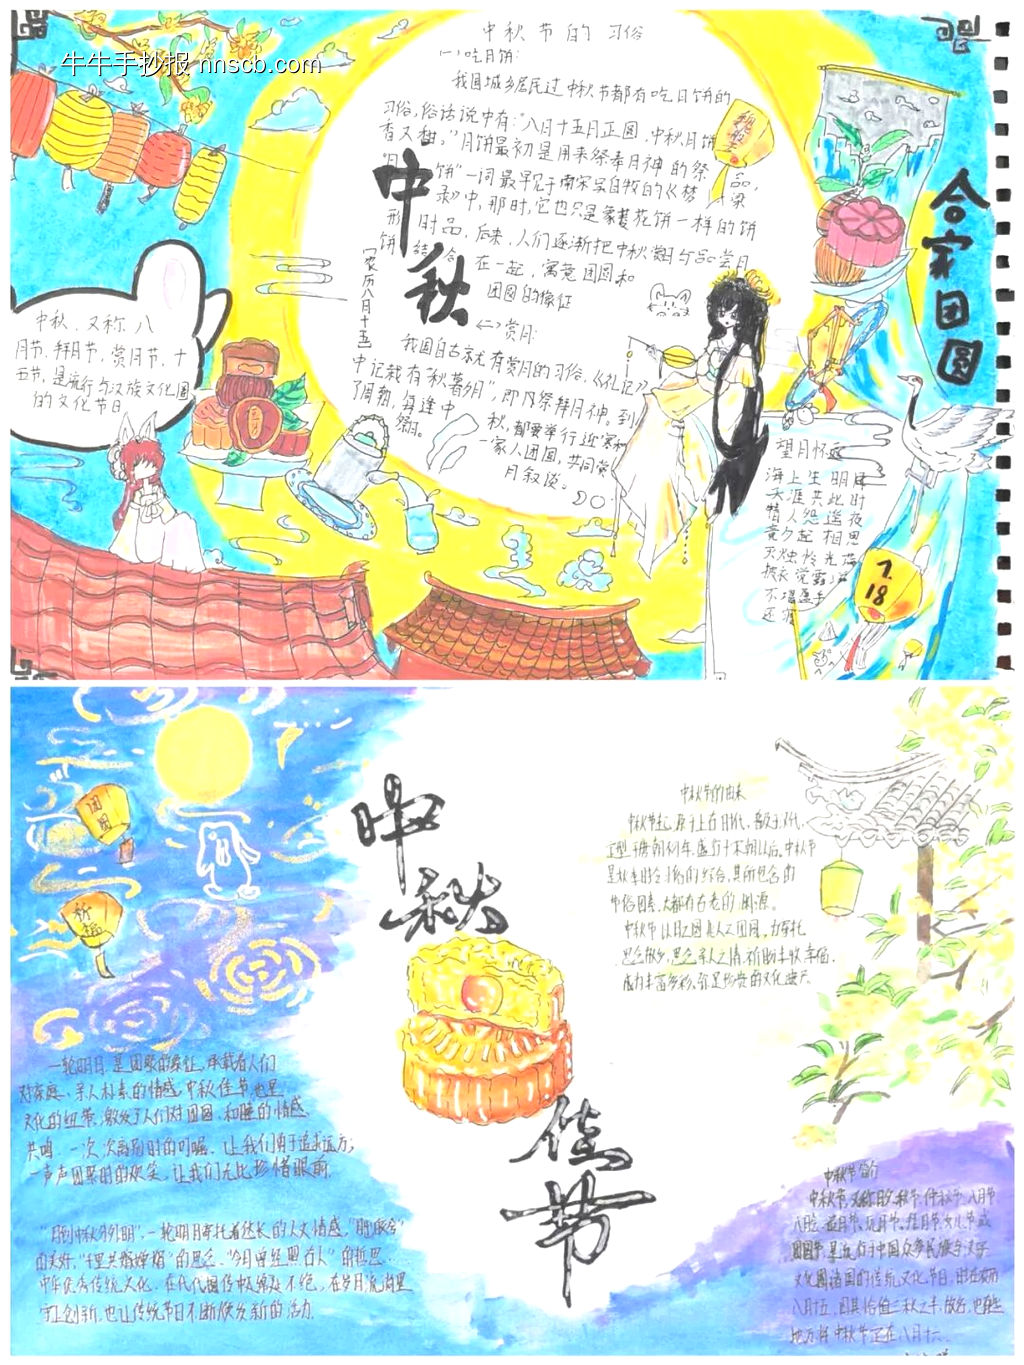 牛牛手抄报 nnscb.com
中秋节的习俗
(一)吃月饼:
我国城乡居民过中秋节都有吃月饼的
习俗,俗话说中有:"八月十五月正圆,中秋月饼
香又甜。"月饼最初是用来祭奉月神的祭品,
"月饼"一词最早见于南宋吴自牧的《梦粱
录》中,那时,它也只是象菱花饼一样的饼
形食品,后来,人们逐渐把中秋赏月与品尝月
饼结合在一起,寓意团圆和
团圆的象征
(二)赏月:
我国自古就有赏月的习俗,《礼记》
中记载有"秋暮夕月",即为祭拜月神。到
了周朝,每逢中秋,都要举行迎寒和
祭月。
一家人团圆,共同赏
月叙谈。
中秋
【农历八月十五】
合家团圆
中秋,又称八
月节、拜月节、赏月节、十
五节,是流行与汉族文化圈
的文化节日
望月怀远
海上生明月
天涯共此时
情人怨遥夜
竟夕起相思
灭烛怜光满
披衣觉露滋
不堪盈手
还寝
7.18
团圆
祈福
中秋
佳节
中秋节的由来
中秋节起源于上古时代,普及于汉代,
定型于唐朝初年,盛行于宋朝以后。中秋节
是秋季时令习俗的综合,其所包含的
节俗因素,大都有古老的渊源。
中秋节以月之圆兆人之团圆,为寄托
思念故乡,思念亲人之情,祈盼丰收、幸福,
成为丰富多彩、弥足珍贵的文化遗产。
一轮明月,是团聚的象征,承载着人们
对家庭、亲人朴素的情感。中秋佳节,也是
文化的纽带,激发了人们对团圆、和睦的情感
共鸣。一次次离别时的叮嘱,让我们勇于追求远方;
一声声团聚时的欢笑,让我们无比珍惜眼前。
"月到中秋分外明",一轮明月寄托着悠长的人文情感,
的美好,"千里共婵娟"的思念,"今月曾经照古人"的哲思……
中华优秀传统文化,在代代相传中从绵延不绝,在岁月流淌里
守正创新,也让传统节日不断焕发新的活力。
中秋节简介
中秋节,又称月夕、秋节、仲秋节、八月节、
八月会、追月节、玩月节、拜月节、女儿节或
团圆节,是流行于中国众多民族与汉字
文化圈诸国的传统文化节日,时在农历
八月十五,因其恰值三秋之半,故名,也有些
地方将中秋节定在八月十六。